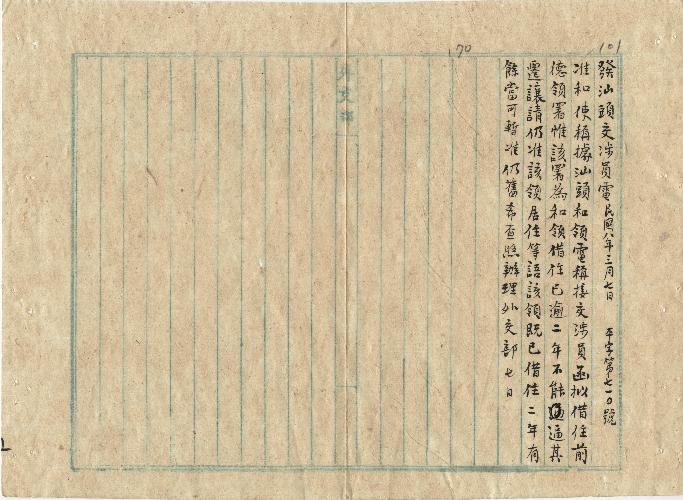 101
70
發汕頭交涉員電民國八年三月七日 平字第七一〇號
准和使稱據汕頭和領電稱接交涉員函擬借住前
德領署惟該署為和領借住已逾二年不能逼其
遷讓請仍准該領居住等語該領既已借住二年有
餘當可暫准仍舊希查照辦理外交部七日
外交部